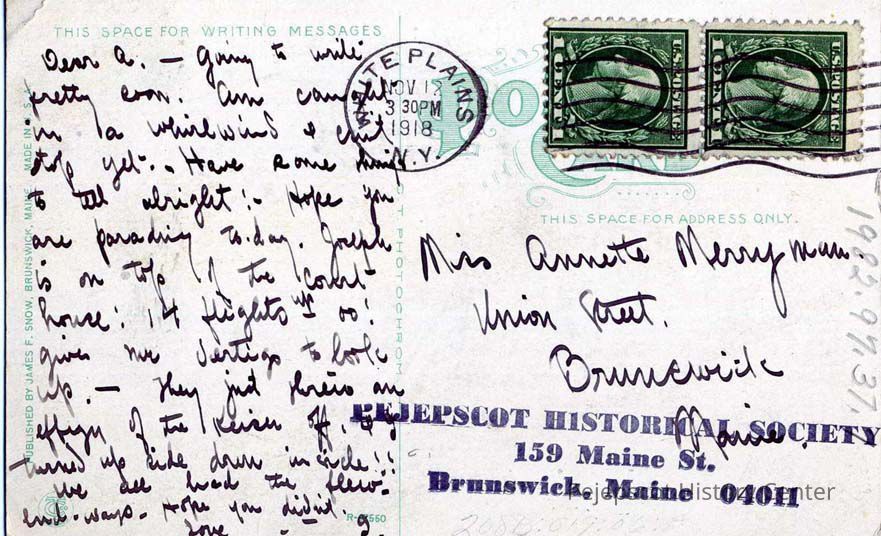 THIS SPACE FOR WRITING MESSAGES
Dear A. — Going to write
pretty soon. Am caught
in a whirlwind & can't
stop yet. Have some things
to tell alright! - Hope you
are parading to-day. Joseph
is on top of the court-
house! 14 flights up
gives me vertigo to look
up. — They just threw an
effigy of the Keiser off. It
turned up side down in circle!!
We all had the flew.
end-ways. Hope you didn't.
Love - J.
PUBLISHED BY JAMES F. SNOW, BRUNSWICK, MAINE. MADE IN U.S.A.
PHOTOCHROM
R-550
WHITE PLAINS
NOV 12
3 30 PM
1918
N.Y.
U.S. POSTAGE
1 1
U.S. POSTAGE
1 1
THIS SPACE FOR ADDRESS ONLY.
Miss Annette Merryman.
Union Street.
Brunswick
Maine.
PEJEPSCOT HISTORICAL SOCIETY
159 Maine St.
Brunswick, Maine 04011
Pejepscot History Center
1982.97.37.